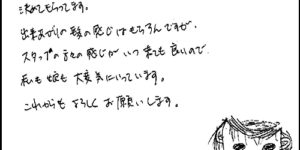 決めてもらってます。
出来あがりの髪の感じはもちろんですが、
スタッフの方々の感じがいつ来ても良いので
私も娘も大変気にいっています。
これからもよろしくお願いします。